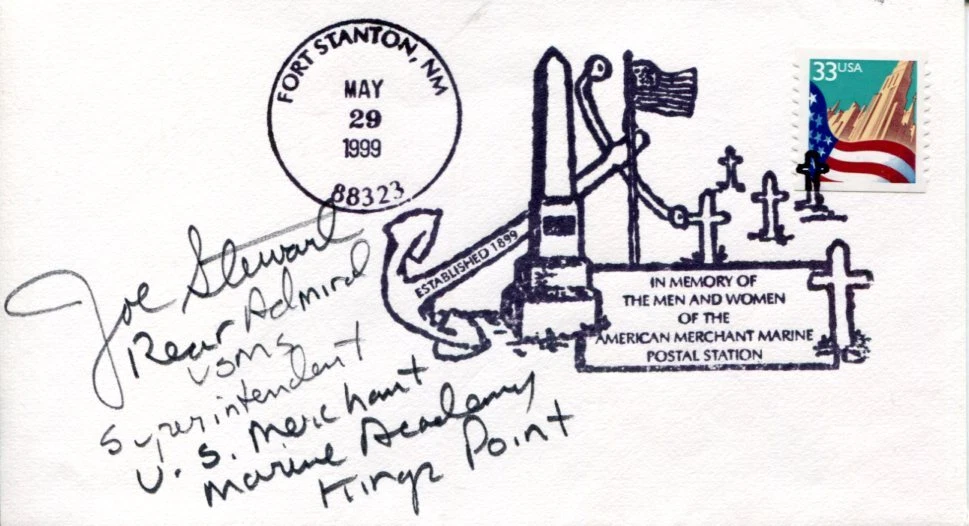 FORT STANTON, NM
MAY
29
1999
88323
33USA
ESTABLISHED 1899
IN MEMORY OF
THE MEN AND WOMEN
OF THE
AMERICAN MERCHANT MARINE
POSTAL STATION
Joe Stewart
Rear Admiral
USMS
Superintendent
U.S. Merchant
Marine Academy
Kings Point